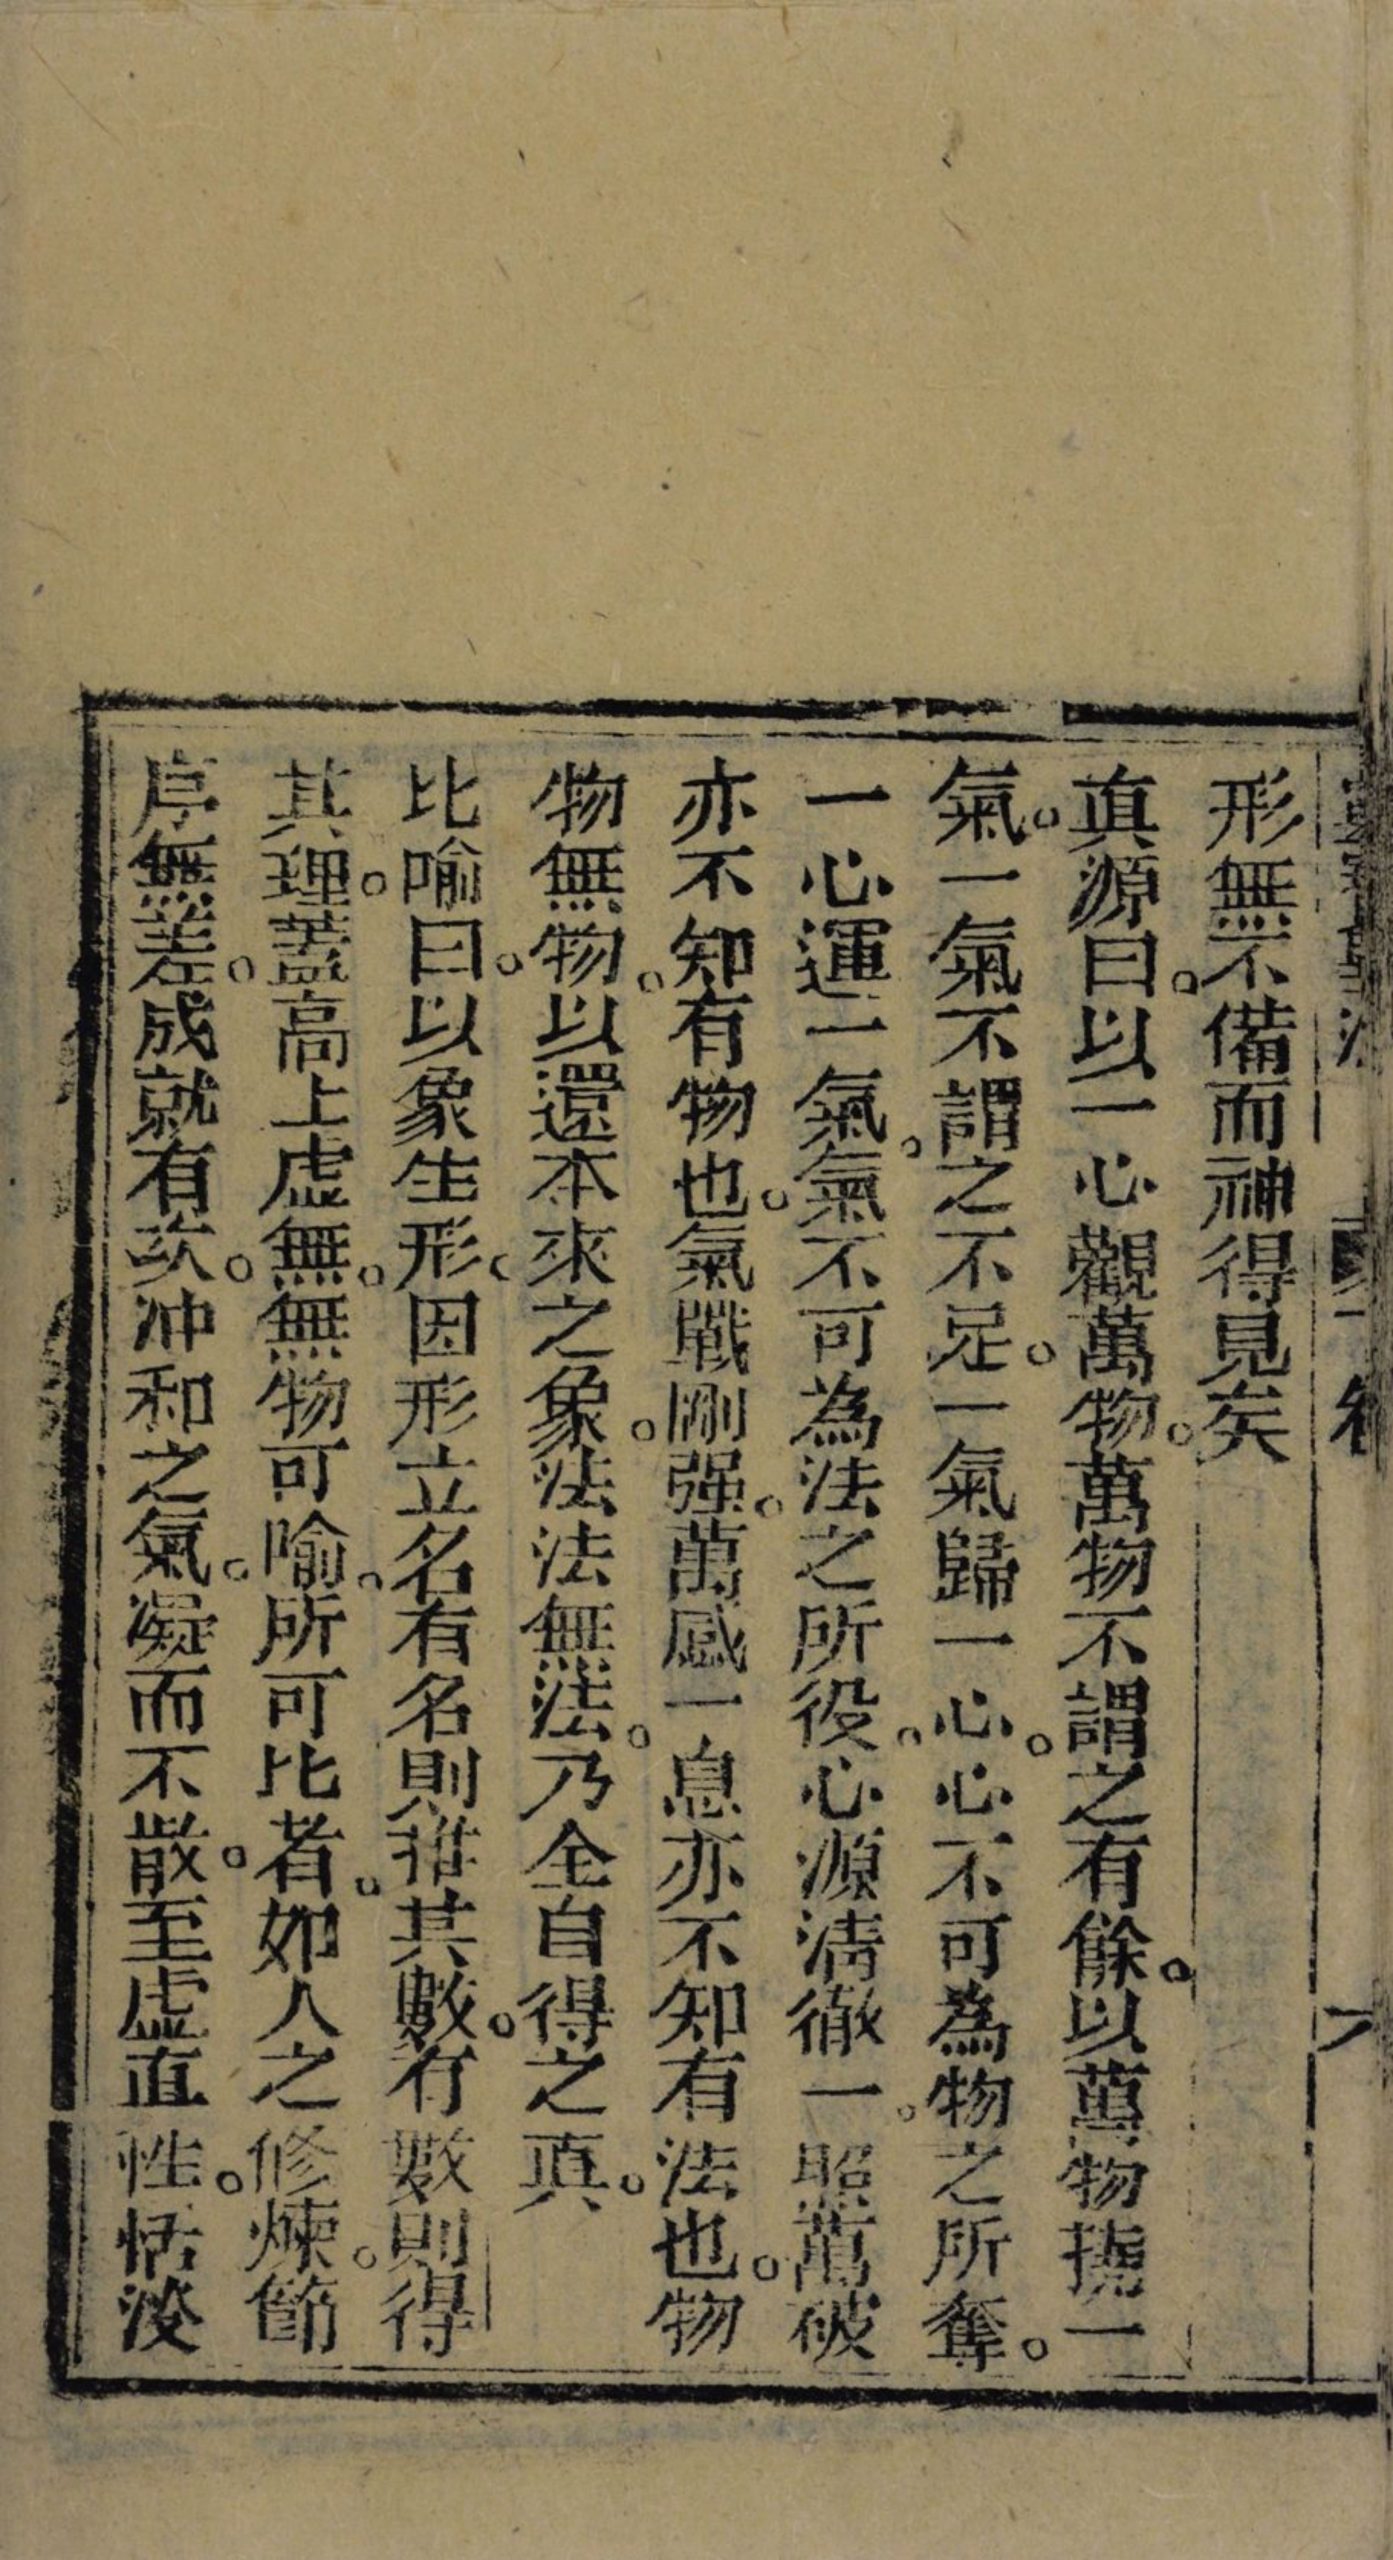 形無不備而神得見矣
真源曰。以一心觀萬物。萬物不謂之有餘。以萬物撓一
氣。一氣不謂之不足。一氣歸一心。心不可為物之所奪。
一心運一氣。氣不可為法之所役。心源淸徹。一照萬破
亦不知有物也。氣戰剛强。萬感一息亦不知有法也。物
物無物。以還本來之象。法法無法。乃全自得之真。
比喻曰。以象生形。因形立名有名則推其數。有數則得
其理。蓋高上虛無。無物可喻。所可比者。如人之修煉。節
序無差。成就有次。冲和之氣。凝而不散。至虛直性。恬淡